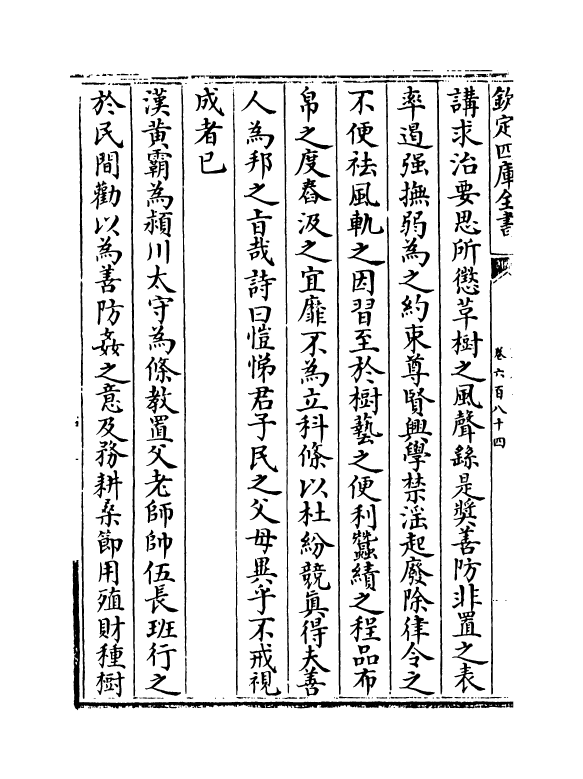 欽定四庫全書
卷六百八十四
講求治要思所懲草樹之風聲繇是奬善防非置之表
率遏强撫弱為之約束尊賢興學禁滛起廢除律令之
不便祛風軌之因習至於樹藝之便利蠶績之程品布
帛之度舂汲之宜靡不為立科條以杜紛競真得夫善
人為邦之旨哉詩曰愷悌君子民之父母異乎不戒視
成者已
漢黄霸為潁川太守為條教置父老師帥伍長班行之
於民間勸以為善防姦之意及務耕桑節用殖財種樹